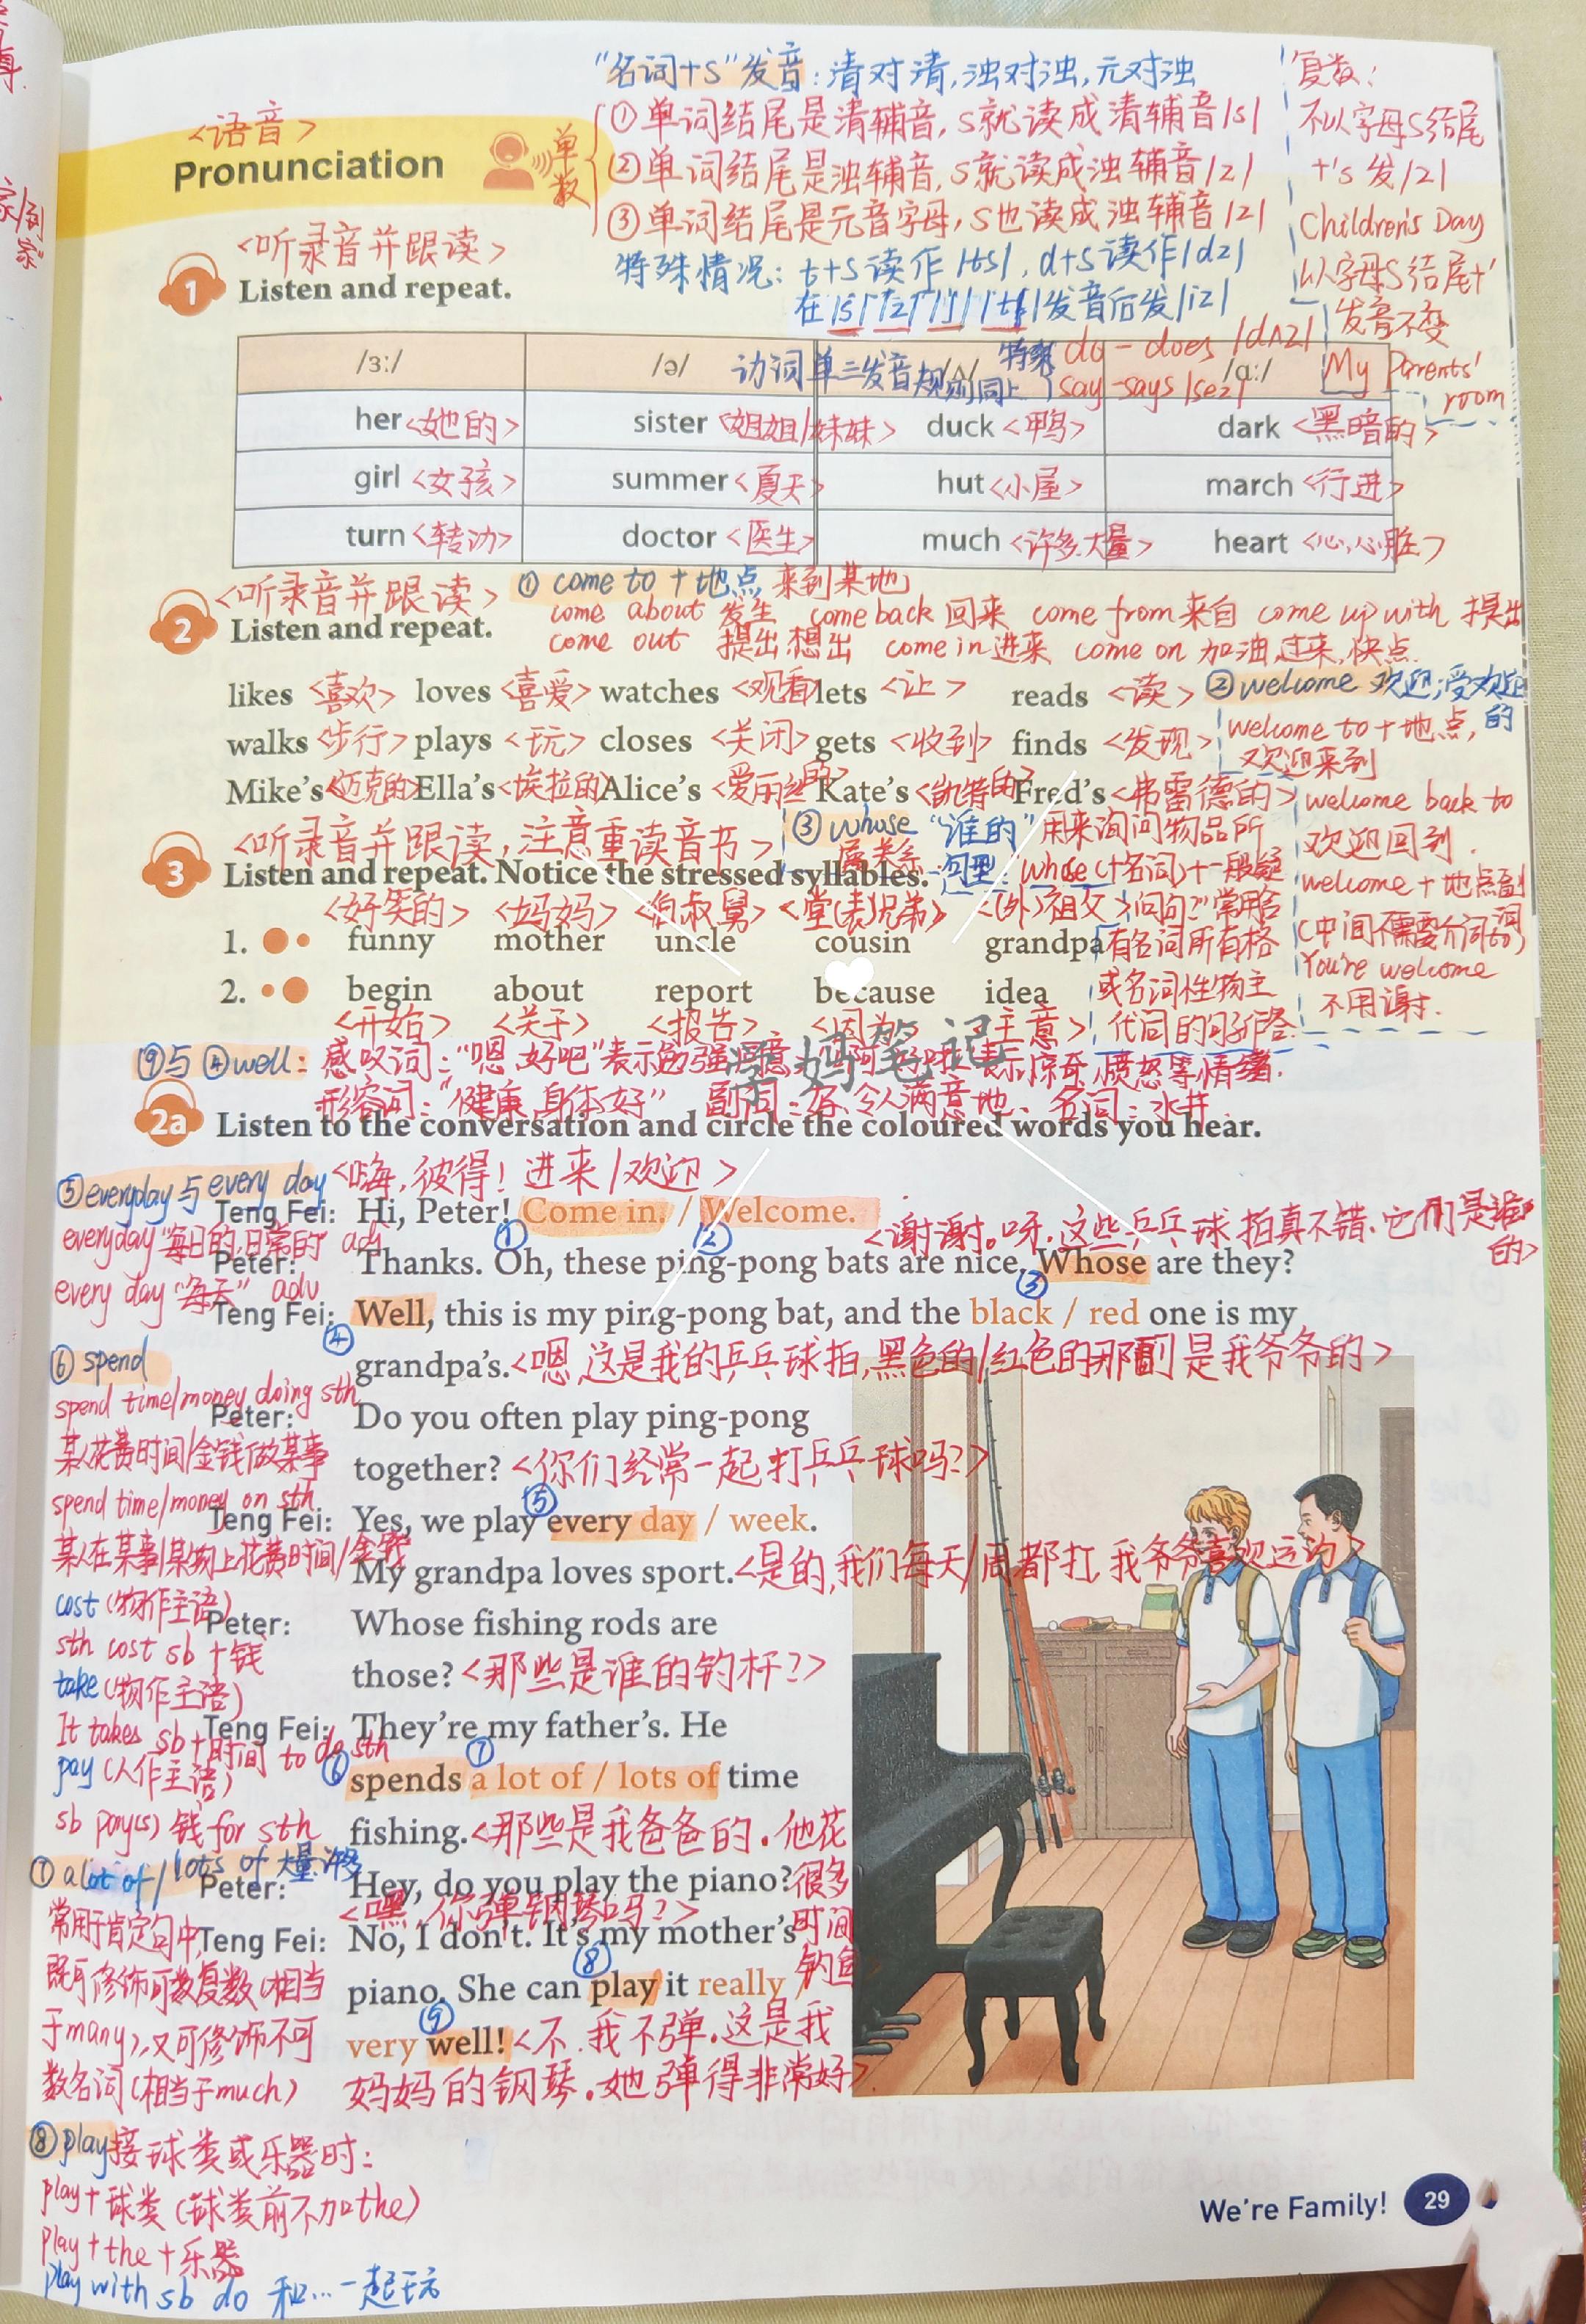 "名词+s"发音:清对清,浊对浊,元对浊
<语音>
Pronunciation
单数
①单词结尾是清辅音,s就读成清辅音/s/
②单词结尾是浊辅音,s就读成浊辅音/z/
③单词结尾是元音字母,s也读成浊辅音/z/
特殊情况:t+s读作/ts/,d+s读作/dz/
在/s/ /z/ /ʃ/ /tʃ/发音后发/iz/
复数:
不以字母s结尾
+'s 发/z/
Children's Day
以字母s结尾+'
发音不变
My Parents'
room
<听录音并跟读>
1 Listen and repeat.
动词单三发音规则同上
特殊 do - does /dʌz/
say - says /sez/
/ɜː/ /ə/ /ʌ/ /ɑː/
her<她的> sister<姐姐/妹妹> duck<鸭> dark<黑暗的>
girl<女孩> summer<夏天> hut<小屋> march<行进>
turn<转动> doctor<医生> much<许多,大量> heart<心,心脏>
<听录音并跟读>
2 Listen and repeat.
① come to + 地点 来到某地
come about 发生 come back 回来 come from 来自 come up with 提出
come out 提出,想出 come in 进来 come on 加油,过来,快点.
likes<喜欢> loves<喜爱> watches<观看> lets<让> reads<读>
walks<步行> plays<玩> closes<关闭> gets<收到> finds<发现>
Mike's<迈克的> Ella's<埃拉的> Alice's<爱丽丝的> Kate's<凯特的> Fred's<弗雷德的>
②welcome 欢迎;受欢迎的
welcome to + 地点,
欢迎来到
welcome back to
欢迎回到.
welcome + 地点副词
(中间不需要介词to)
You're welcome
不用谢.
<听录音并跟读,注意重读音节>
3 Listen and repeat. Notice the stressed syllables.
③ whose "谁的"用来询问物品所
属关系
句型:whose(+名词)+一般疑
问句?常用含
有名词所有格
或名词性物主
代词的句子回答.
<好笑的> <妈妈> <伯叔舅> <堂(表)兄弟> <(外)祖父>
1. funny mother uncle cousin grandpa
2. begin about report because idea
<开始> <关于> <报告> <因为> <主意>
学妈笔记
⑨与④well:感叹词:"嗯,好吧"表示勉强同意; 表示惊奇,愤怒等情绪.
形容词:"健康,身体好" 副词:好、令人满意地、名词:水井.
2a Listen to the conversation and circle the coloured words you hear.
<嗨,彼得!进来/欢迎>
Teng Fei: Hi, Peter! Come in. / Welcome.
① ②
<谢谢。呀,这些乒乓球拍真不错.它们是谁的>
Peter: Thanks. Oh, these ping-pong bats are nice. Whose are they?
③
Teng Fei: Well, this is my ping-pong bat, and the black / red one is my
④
grandpa's.<嗯,这是我的乒乓球拍,黑色的/红色的那副是我爷爷的>
Peter: Do you often play ping-pong
together?<你们经常一起打乒乓球吗?>
⑤
Teng Fei: Yes, we play every day / week.
My grandpa loves sport.<是的,我们每天/周都打,我爷爷喜欢运动>
Peter: Whose fishing rods are
those?<那些是谁的钓杆?>
Teng Fei: They're my father's. He
⑥ ⑦
spends a lot of / lots of time
fishing.<那些是我爸爸的.他花
很多
时间
钓鱼
Peter: Hey, do you play the piano?
<嘿,你弹钢琴吗?>
Teng Fei: No, I don't. It's my mother's
⑧
piano. She can play it really /
⑨
very well!<不.我不弹.这是我
妈妈的钢琴.她弹得非常好>
⑤everyday 与 every day
everyday "每日的,日常的" adj
every day "每天" adv
⑥ spend
spend time/money doing sth
某人花费时间/金钱做某事
spend time/money on sth
某人在某事/某物上花费时间/金钱
cost (物作主语)
sth cost sb + 钱
take (物作主语)
It takes sb + 时间 to do sth
pay (人作主语)
sb pay(s) 钱 for sth
⑦ a lot of / lots of 大量,许多
常用于肯定句中,
既可修饰可数复数(相当
于many),又可修饰不可
数名词(相当于much)
⑧ play接球类或乐器时:
play+球类(球类前不加the)
play+the+乐器
play with sb do 和…一起玩
We're Family! 29